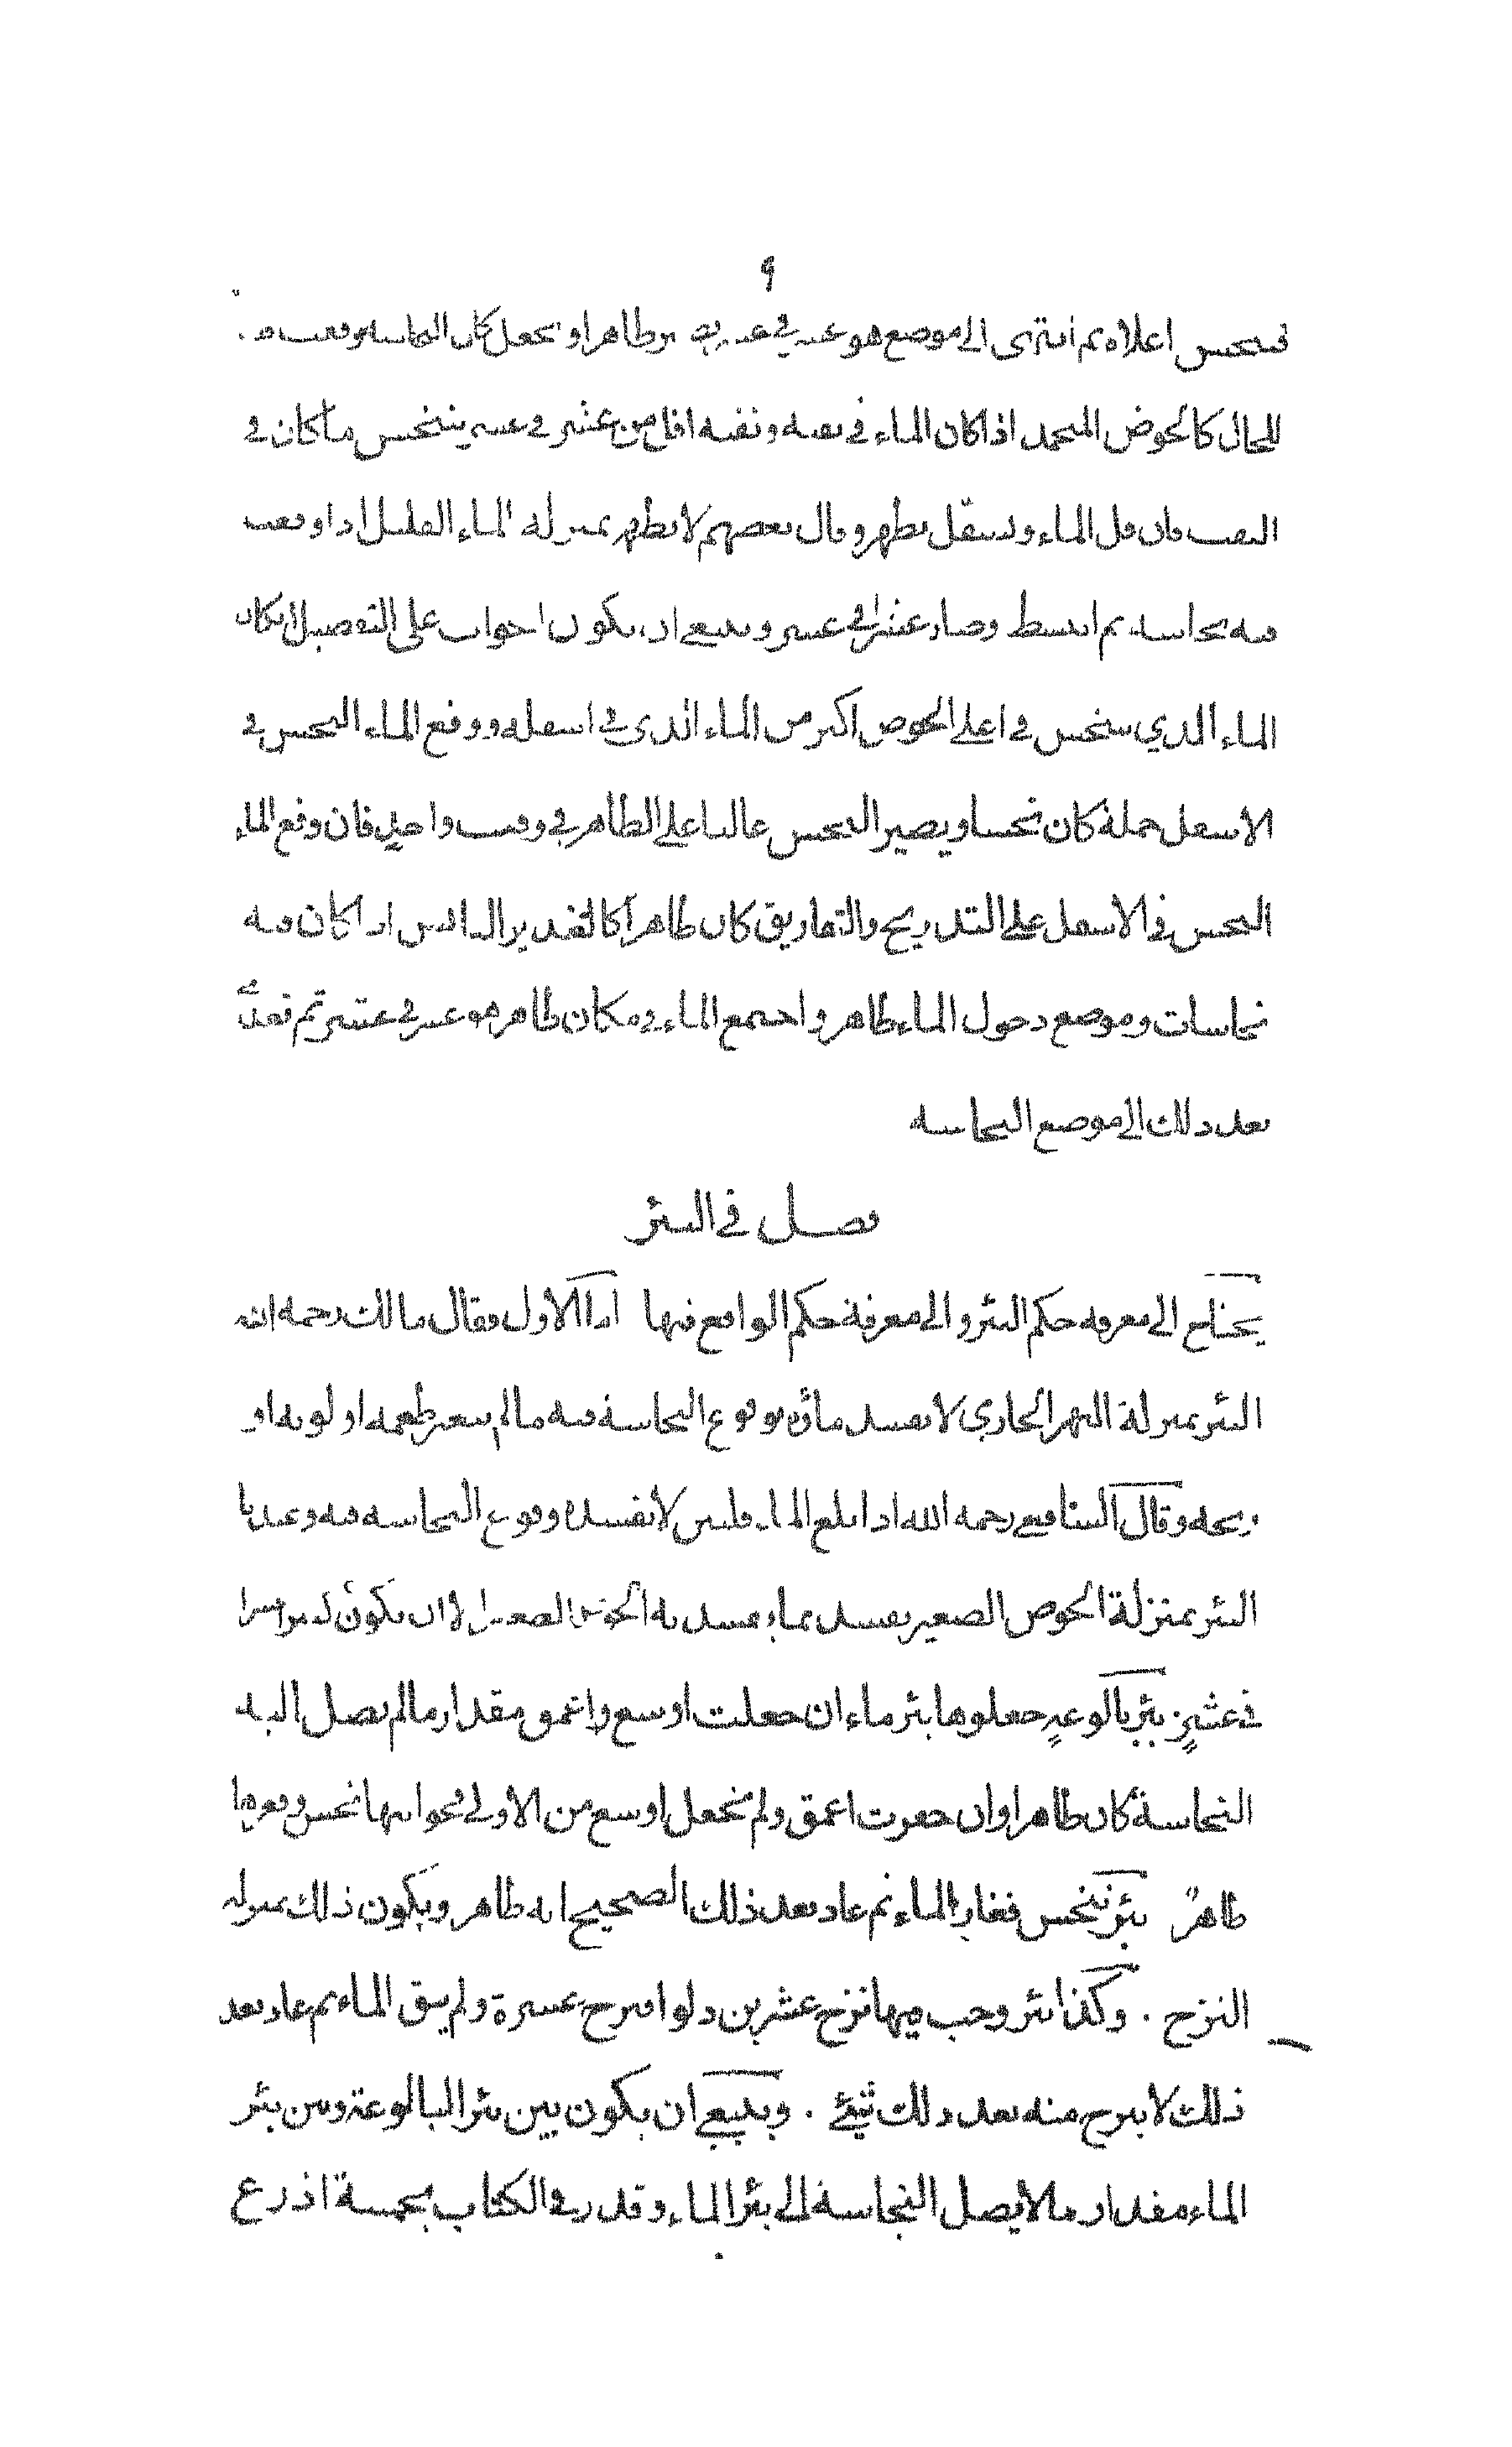 ٩
فينجس اعلاه ثم انتهى الى موضع هو عشر في عشر يصير طاهرا و يجعل كان النجاسة وقعت فيه
للحال كالحوض المنجمد اذا كان الماء في نقبه ونقبه اقل من عشر في عشر يتنجس ما كان في
النقب فان قل الماء وتسفل يطهر وقال بعضهم لا يطهر بمنزلة الماء القليل اذا وقعت
فيه نجاسة ثم انبسط وصار عشرا في عشر وينبغي ان يكون الجواب على التفصيل ان كان
الماء الذي تنجس في اعلى الحوض اكثر من الماء الذي في اسفله ووقع الماء النجس في
الاسفل جملة كان نجسا ويصير النجس غالبا على الطاهر في وقت واحد فان وقع الماء
النجس في الاسفل على التدريج والتفاريق كان طاهرا كالغدير اليابس اذا كان فيه
نجاسات وموضع دخول الماء طاهر واجتمع الماء في مكان طاهر هو عشر في عشر ثم تعدى
بعد ذلك الى موضع النجاسة
فصل في البئر
يحتاج الى معرفة حكم البئر والى معرفة حكم الواقع فيها اما الاول فقال مالك رحمه الله
البئر بمنزلة النهر الجاري لا يفسد ماؤه بوقوع النجاسة فيه ما لم يتغير طعمه او لونه او
ريحه وقال الشافعي رحمه الله اذا بلغ الماء قلتين لا يفسده وقوع النجاسة فيه وعندنا
البئر بمنزلة الحوض الصغير يفسد بما يفسد به الحوض الصغير الا ان يكون عشرا
في عشر بئر بالوعة جعلوها بئر ماء ان جعلت اوسع واعمق مقدار ما لم يصل اليه
النجاسة كان طاهرا وان حفرت اعمق ولم تجعل اوسع من الاولى فجوانبها نجس وقعرها
طاهر بئر تنجس فغار الماء ثم عاد بعد ذلك الصحيح انه طاهر ويكون ذلك بمنزلة
النزح . وكذا بئر وجب فيها نزح عشرين دلوا فنزح عشرة ولم يبق الماء ثم عاد بعد
ذلك لا ينزح منه بعد ذلك شيئ . وينبغي ان يكون بين بئر البالوعة وبين بئر
الماء مقدار ما لا يصل النجاسة الى بئر الماء وقدر في الكتاب بخمسة اذرع